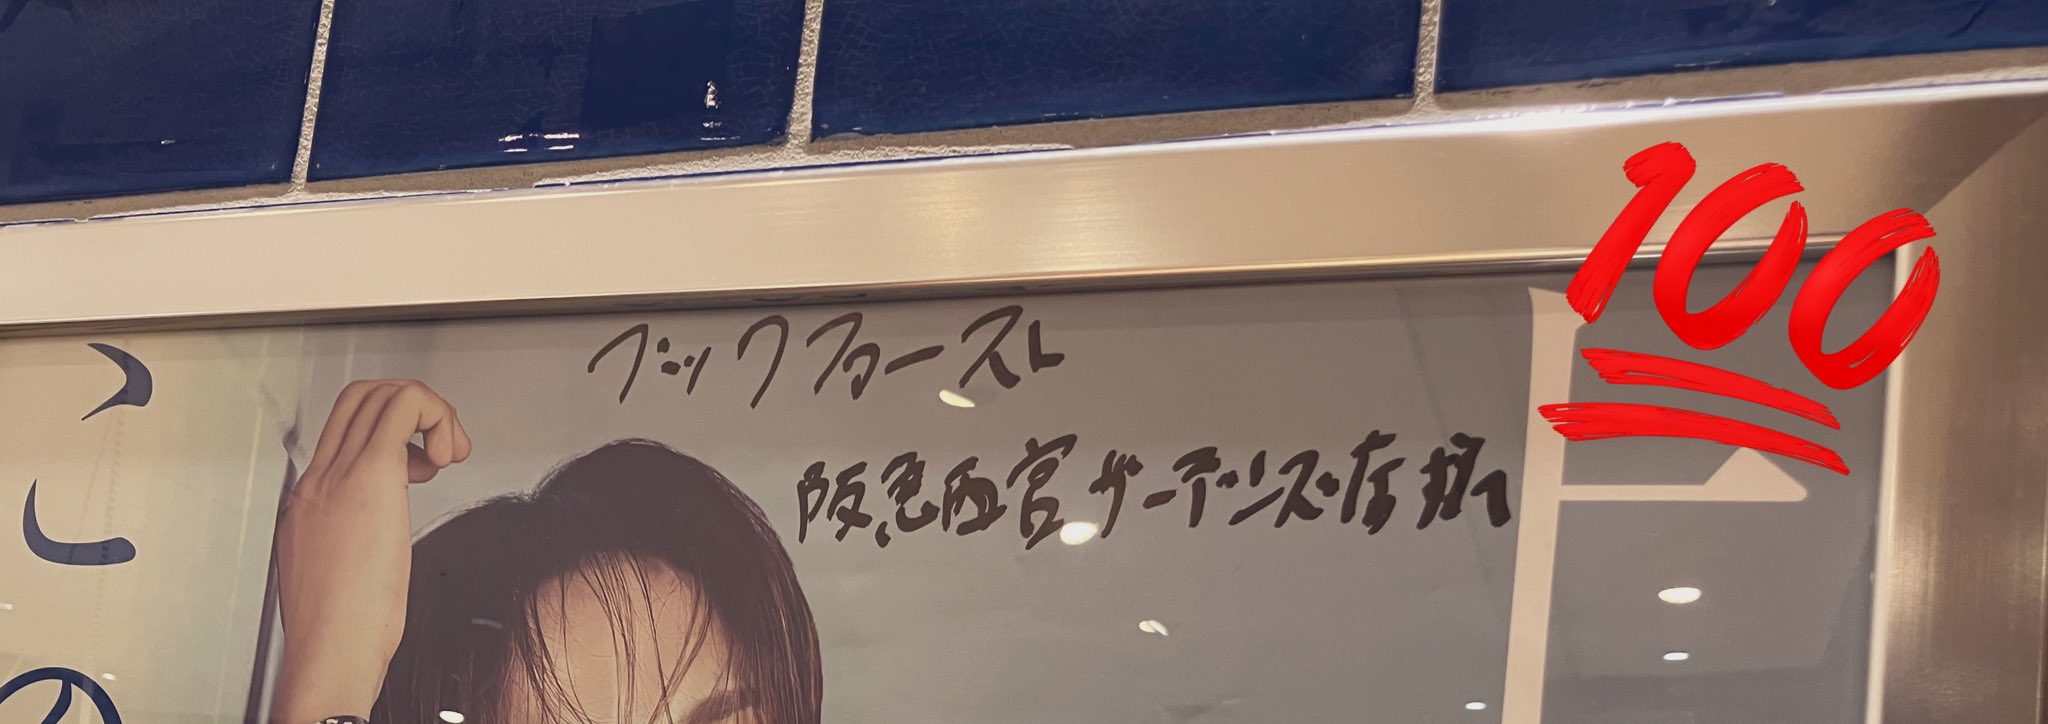 ブックファースト
阪急西宮ガーデンズ店 様
100
こ
の